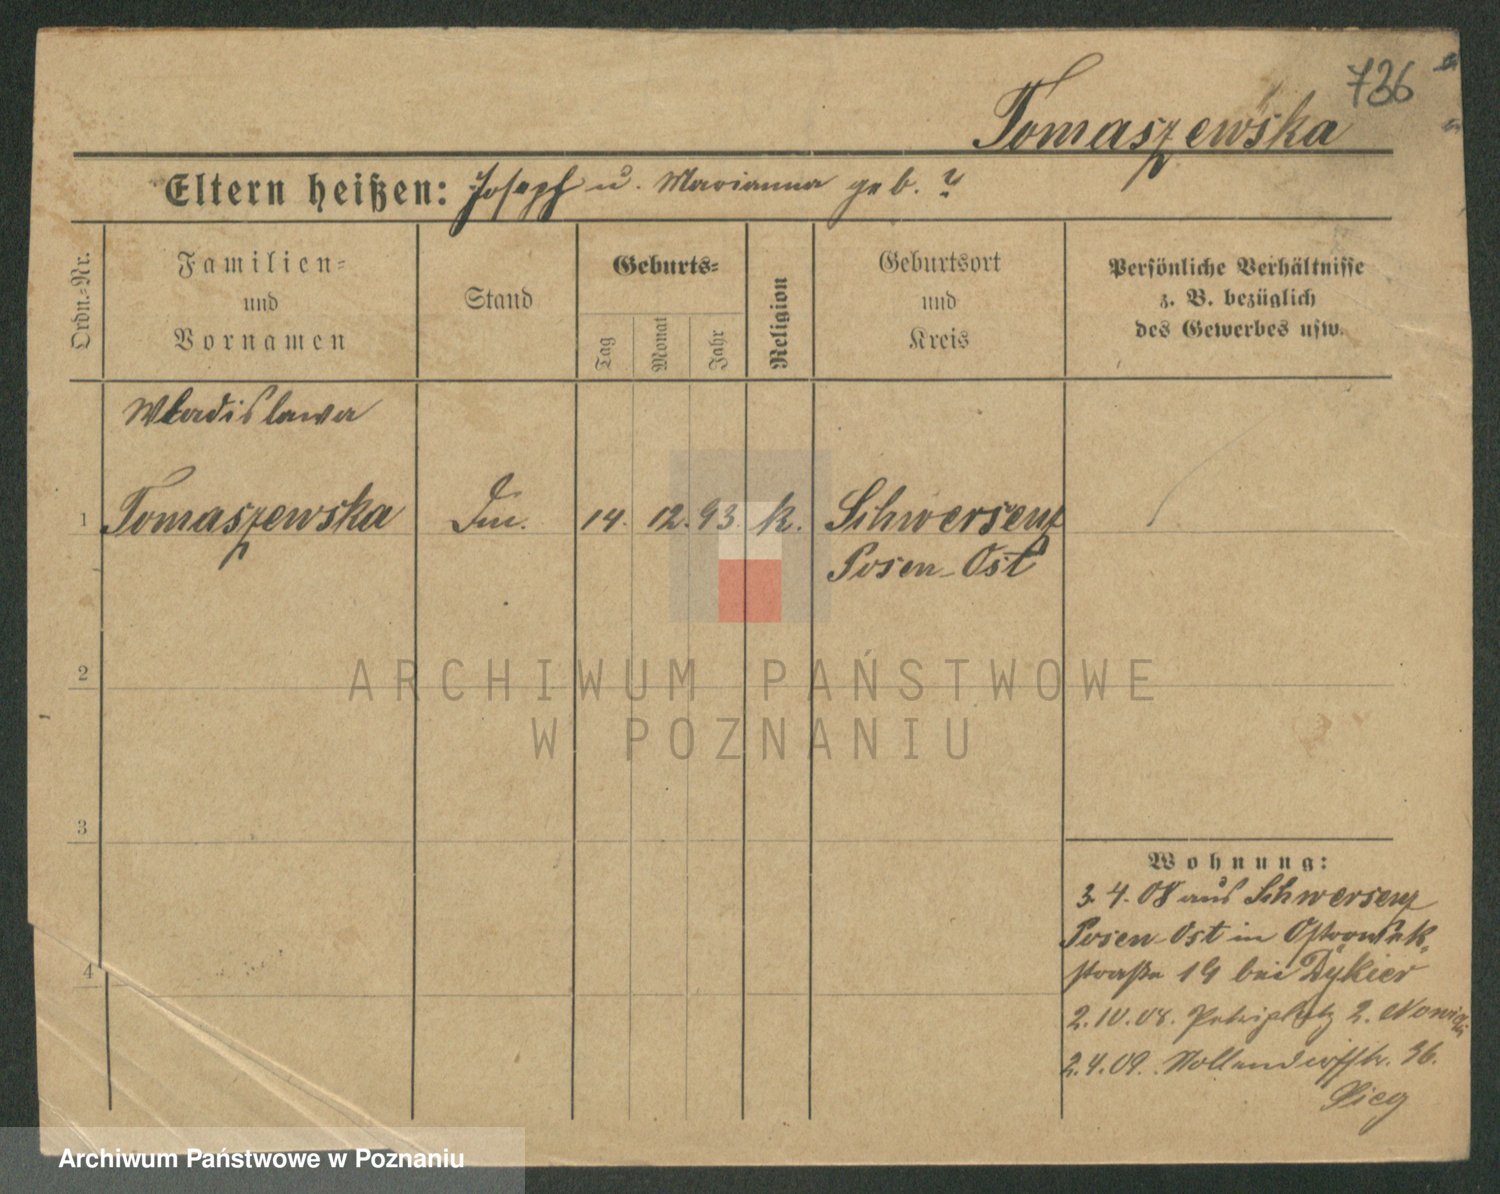 736
Tomaszewska
Eltern heißen: Joseph u. Marianna geb. ?
Ordn.-Nr.
Familien-
und
Vornamen
Stand
Geburts-
Tag
Monat
Jahr
Religion
Geburtsort
und
Kreis
Persönliche Verhältnisse
z. B. bezüglich
des Gewerbes usw.
Wladislawa
1 Tomaszewska 14. 12. 93. k. Schwersenz
Posen-Ost
2
3
4
Wohnung:
3. 4. 08 aus Schwersenz
Posen-Ost in
straße 19 bei Dykier
2. 10. 08. Petriplatz 2.
2. 4. 09. Nollendorfstr. 36.
ARCHIWUM PAŃSTWOWE
W POZNANIU
Archiwum Państwowe w Poznaniu